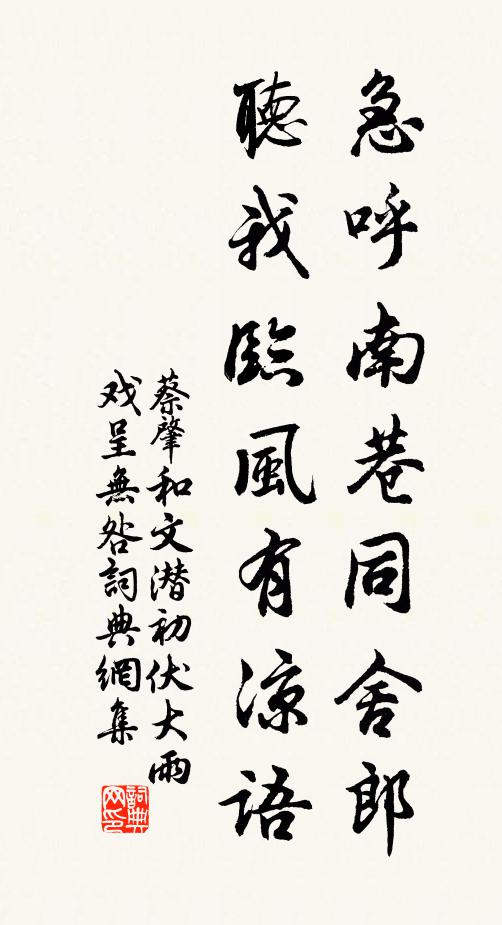 急呼南巷同舍郎
聽我臨風有凉語
蔡肇和文潜初伏大雨
戏呈無咎詞典網集
詞典网印